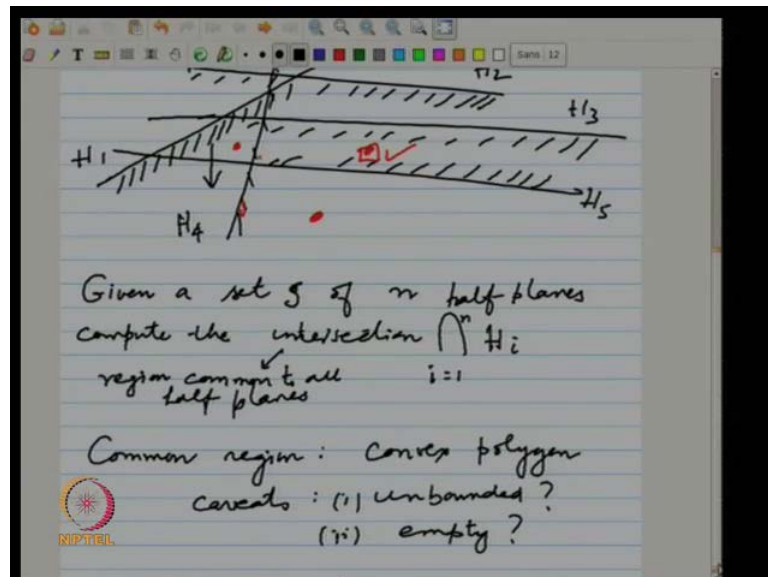 T Sans 12
H2
H3
H1
H5
H4
Given a set S of n half planes
compute the intersection ⋂ Hi
n
i=1
region common to all
half planes
Common region : Convex polygon
caveats : (i) unbounded ?
(ii) empty ?
NPTEL